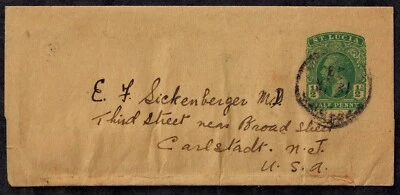 ST. LUCIA
½ ½
HALF PENNY
E. F. Sickenberger M.D
Third Street near Broad Street
Carlstadt. N.J.
U.S.A.